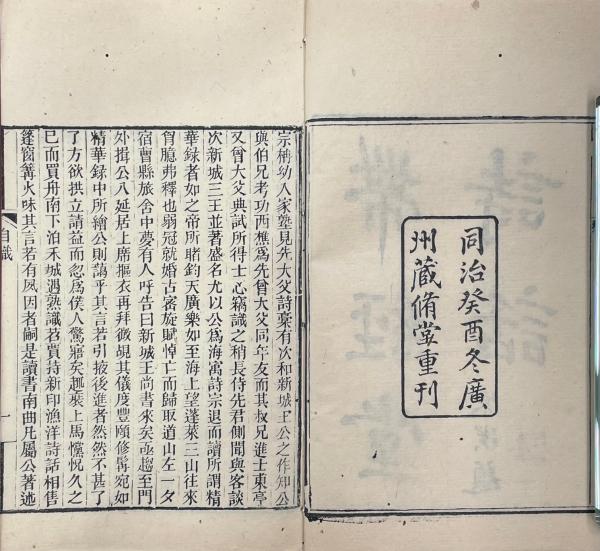 同治癸酉冬廣
州藏脩堂重刊
宗柟幼入家塾見先大父詩稾有次和新城王公之作知公
與伯兄考功西樵爲先曾大父同年友而其叔兄進士東亭
又曾大父典試所得士心竊識之稍長侍先君側聞與客談
次新城三王並著盛名尤以公爲海寓詩宗退而讀所謂精
華録者如之帝所睹鈞天廣樂如至海上望蓬萊三山往來
胷臆弗釋也弱冠就婚古密旋賦悼亡而歸取道山左一夕
宿曹縣旅舍中夢有人呼告曰新城王尚書來矣亟趨至門
外揖公入延居上席摳衣再拜微覘其儀度豐頤修髯宛如
精華録中所繪公則藹乎其言若引掖後進者然然不甚了
了方欲拱立請益而忽爲僕人驚寤矣趣裝上馬戃怳久之
已而買舟南下泊禾城遇熟識茗賈持新印漁洋詩話相售
篷窗篝火味其言若有夙因者嗣是讀書南曲凡屬公著述
自識
一